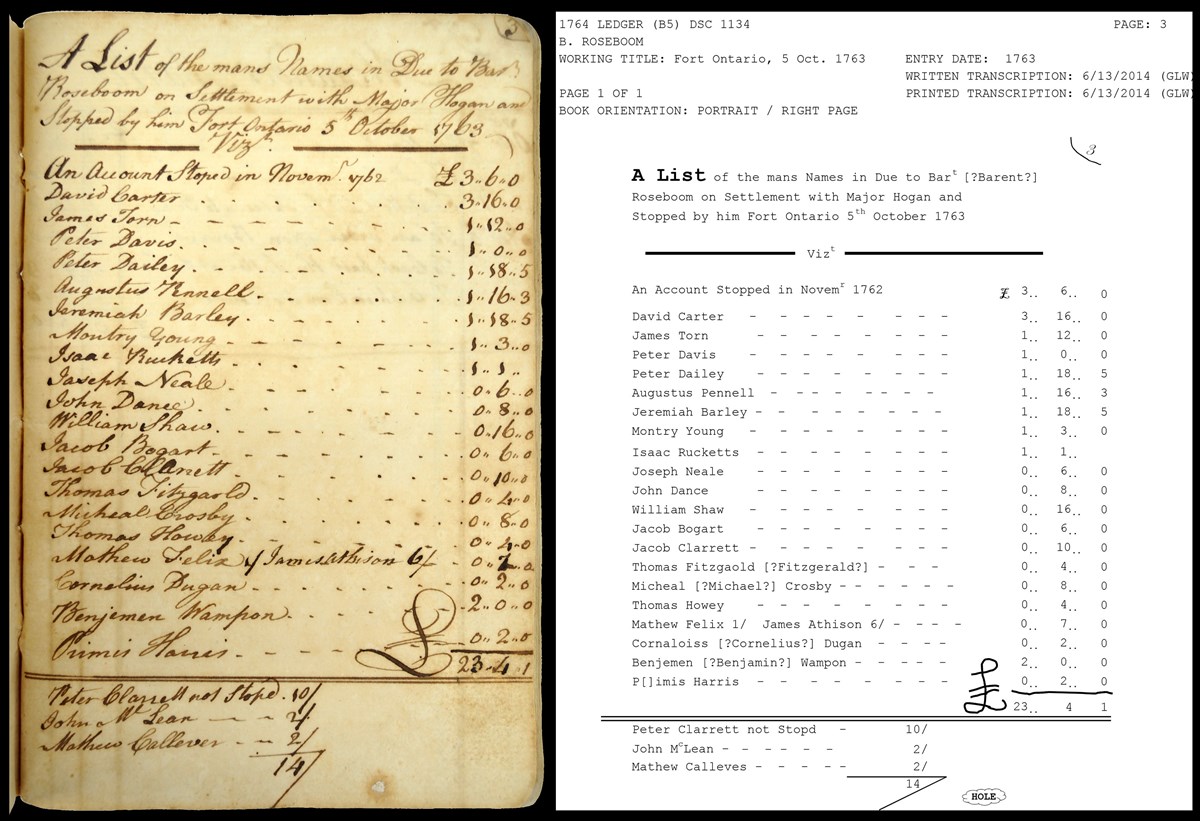 3
A List of the mans Names in Due to Bar^t
Roseboom on Settlement with Major Hogan and
Stopped by him Fort Ontario 5^th October 1763
Viz^t
An Account Stoped in Novem^r. 1762 £ 3 „ 6 „ 0
David Carter 3 „ 16 „ 0
James Torn 1 „ 12 „ 0
Peter Davis 1 „ 0 „ 0
Peter Dailey 1 „ 18 „ 5
Augustus Pennell 1 „ 16 „ 3
Jeremiah Barley 1 „ 18 „ 5
Montry Young 1 „ 3 „ 0
Isaac Rucketts 1 „ 1 „
Joseph Neale 0 „ 6 „ 0
John Dance 0 „ 8 „ 0
William Shaw 0 „ 16 „ 0
Jacob Bogart 0 „ 6 „ 0
Jacob Clarrett 0 „ 10 „ 0
Thomas Fitzgarld 0 „ 4 „ 0
Micheal Crosby 0 „ 8 „ 0
Thomas Howey 0 „ 4 „ 0
Mathew Felix 1/ James Athison 6/ 0 „ 7 „ 0
Cornelius Dugan 0 „ 2 „ 0
Benjemen Wampon 2 „ 0 „ 0
Primis Harris 0 „ 2 „ 0
£ 23 „ 4 „ 1
Peter Clarrett not Stopd. 10/
John M^c Lean 2/
Mathew Callever 2/
14/
1764 LEDGER (B5) DSC 1134 PAGE: 3
B. ROSEBOOM
WORKING TITLE: Fort Ontario, 5 Oct. 1763 ENTRY DATE: 1763
WRITTEN TRANSCRIPTION: 6/13/2014 (GLW)
PAGE 1 OF 1 PRINTED TRANSCRIPTION: 6/13/2014 (GLW)
BOOK ORIENTATION: PORTRAIT / RIGHT PAGE
3
A List of the mans Names in Due to Bar^t [?Barent?]
Roseboom on Settlement with Major Hogan and
Stopped by him Fort Ontario 5^th October 1763
Viz^t
An Account Stopped in Novem^r 1762 £ 3.. 6.. 0
David Carter - - - - - - - - 3.. 16.. 0
James Torn - - - - - - - - 1.. 12.. 0
Peter Davis - - - - - - - - 1.. 0.. 0
Peter Dailey - - - - - - - - 1.. 18.. 5
Augustus Pennell - - - - - - - - 1.. 16.. 3
Jeremiah Barley - - - - - - - - 1.. 18.. 5
Montry Young - - - - - - - - 1.. 3.. 0
Isaac Rucketts - - - - - - - - 1.. 1..
Joseph Neale - - - - - - - - 0.. 6.. 0
John Dance - - - - - - - - 0.. 8.. 0
William Shaw - - - - - - - - 0.. 16.. 0
Jacob Bogart - - - - - - - - 0.. 6.. 0
Jacob Clarrett - - - - - - - - 0.. 10.. 0
Thomas Fitzgaold [?Fitzgerald?] - - - 0.. 4.. 0
Micheal [?Michael?] Crosby - - - - - - 0.. 8.. 0
Thomas Howey - - - - - - - - 0.. 4.. 0
Mathew Felix 1/ James Athison 6/ - - - - 0.. 7.. 0
Cornaloiss [?Cornelius?] Dugan - - - - 0.. 2.. 0
Benjemen [?Benjamin?] Wampon - - - - - 2.. 0.. 0
P[]imis Harris - - - - - - - - 0.. 2.. 0
£ 23.. 4 1
Peter Clarrett not Stopd - 10/
John M^cLean - - - - - - 2/
Mathew Calleves - - - - - 2/
14
HOLE